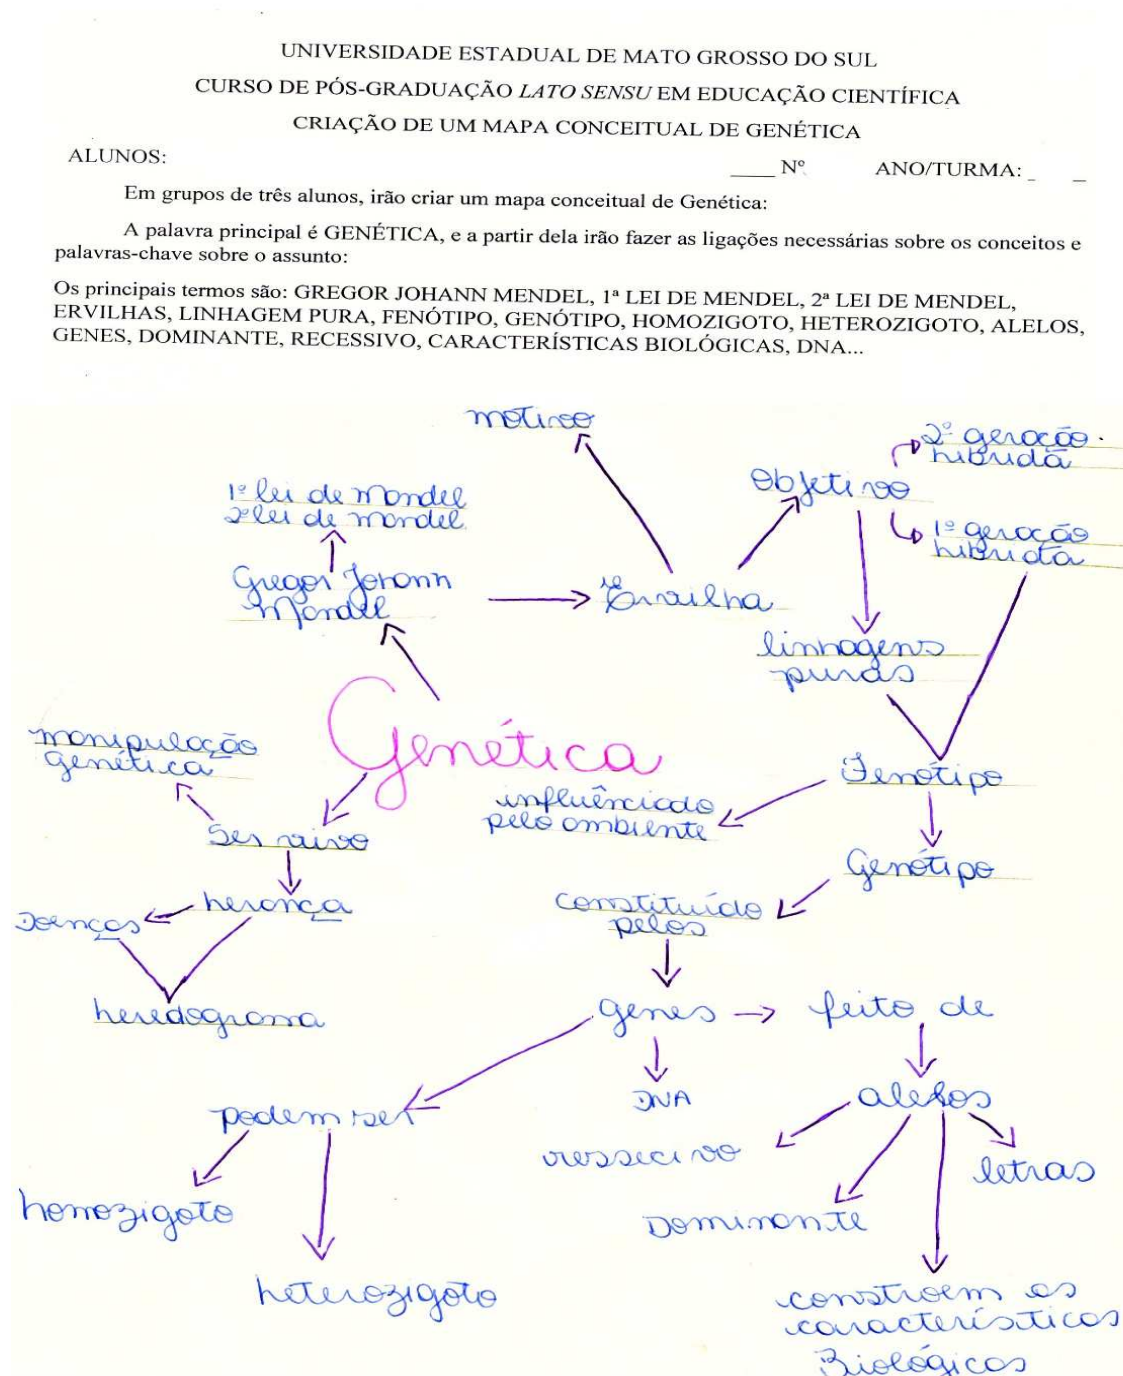 UNIVERSIDADE ESTADUAL DE MATO GROSSO DO SUL
CURSO DE PÓS-GRADUAÇÃO LATO SENSU EM EDUCAÇÃO CIENTÍFICA
CRIAÇÃO DE UM MAPA CONCEITUAL DE GENÉTICA
ALUNOS: ____ Nº ANO/TURMA: _ _
Em grupos de três alunos, irão criar um mapa conceitual de Genética:
A palavra principal é GENÉTICA, e a partir dela irão fazer as ligações necessárias sobre os conceitos e
palavras-chave sobre o assunto:
Os principais termos são: GREGOR JOHANN MENDEL, 1ª LEI DE MENDEL, 2ª LEI DE MENDEL,
ERVILHAS, LINHAGEM PURA, FENÓTIPO, GENÓTIPO, HOMOZIGOTO, HETEROZIGOTO, ALELOS,
GENES, DOMINANTE, RECESSIVO, CARACTERÍSTICAS BIOLÓGICAS, DNA...
motivo
2º geração
hibrida
Objetivo
1º lei de Mendel
2º lei de mendel
1º geração
hibrida
Gregor Johann
Mendel
Ervilha
linhagens
puras
Genética
manipulação
genética
Fenótipo
influênciado
pelo ambiente
Ser vivo
Genótipo
herança
Doenças
constituído
pelos
heredograma
genes
feito de
DNA
alelos
podem ser
ressecivo
letras
homozigoto
Dominante
heterozigoto
constroem as
características
Biológicas